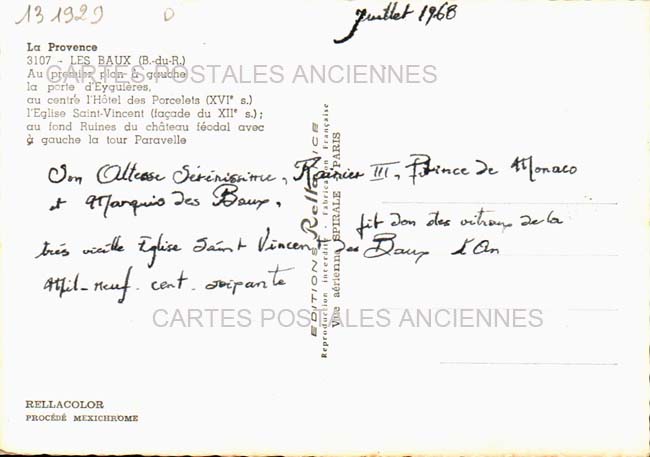 13 1929 0
Juillet 1968
La Provence
3107 - LES BAUX (B.-du-R.)
Au (premier plan à gauche
la porte d'Eyguières,
au centre l'Hôtel des Porcelets (XVIᵉ s.)
l'Eglise Saint-Vincent (façade du XIIᵉ s.);
au fond Ruines du château féodal avec
à gauche la tour Paravelle
CARTES POSTALES ANCIENNES
Son Altesse Sérénissime, Rainier III, Prince de Monaco
et Marquis des Baux, fit don des vitraux de la
très vieille Eglise Saint Vincent des Baux l'An
Mil-neuf-cent-soixante
EDITIONS Rella NICE
Reproduction interdite - Fabrication Française
Vue aérienne SPIRALE - PARIS
CARTES POSTALES ANCIENNES
RELLACOLOR
PROCÉDÉ MEXICHROME